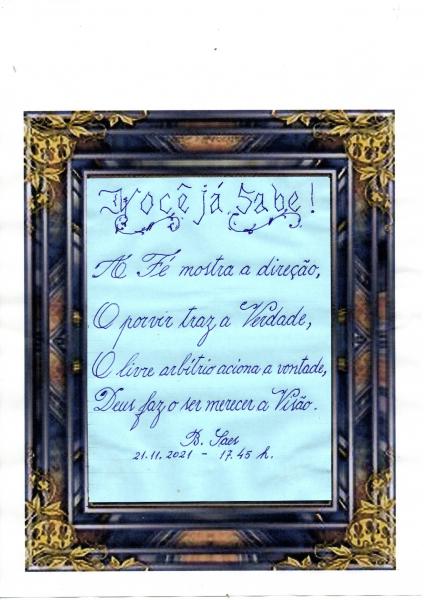 Você já Sabe!
A Fé mostra a direção,
O porvir traz a Verdade,
O livre arbítrio aciona a vontade,
Deus faz o ser merecer a Visão.
B. Saes
21.11.2021 - 17.45 h.